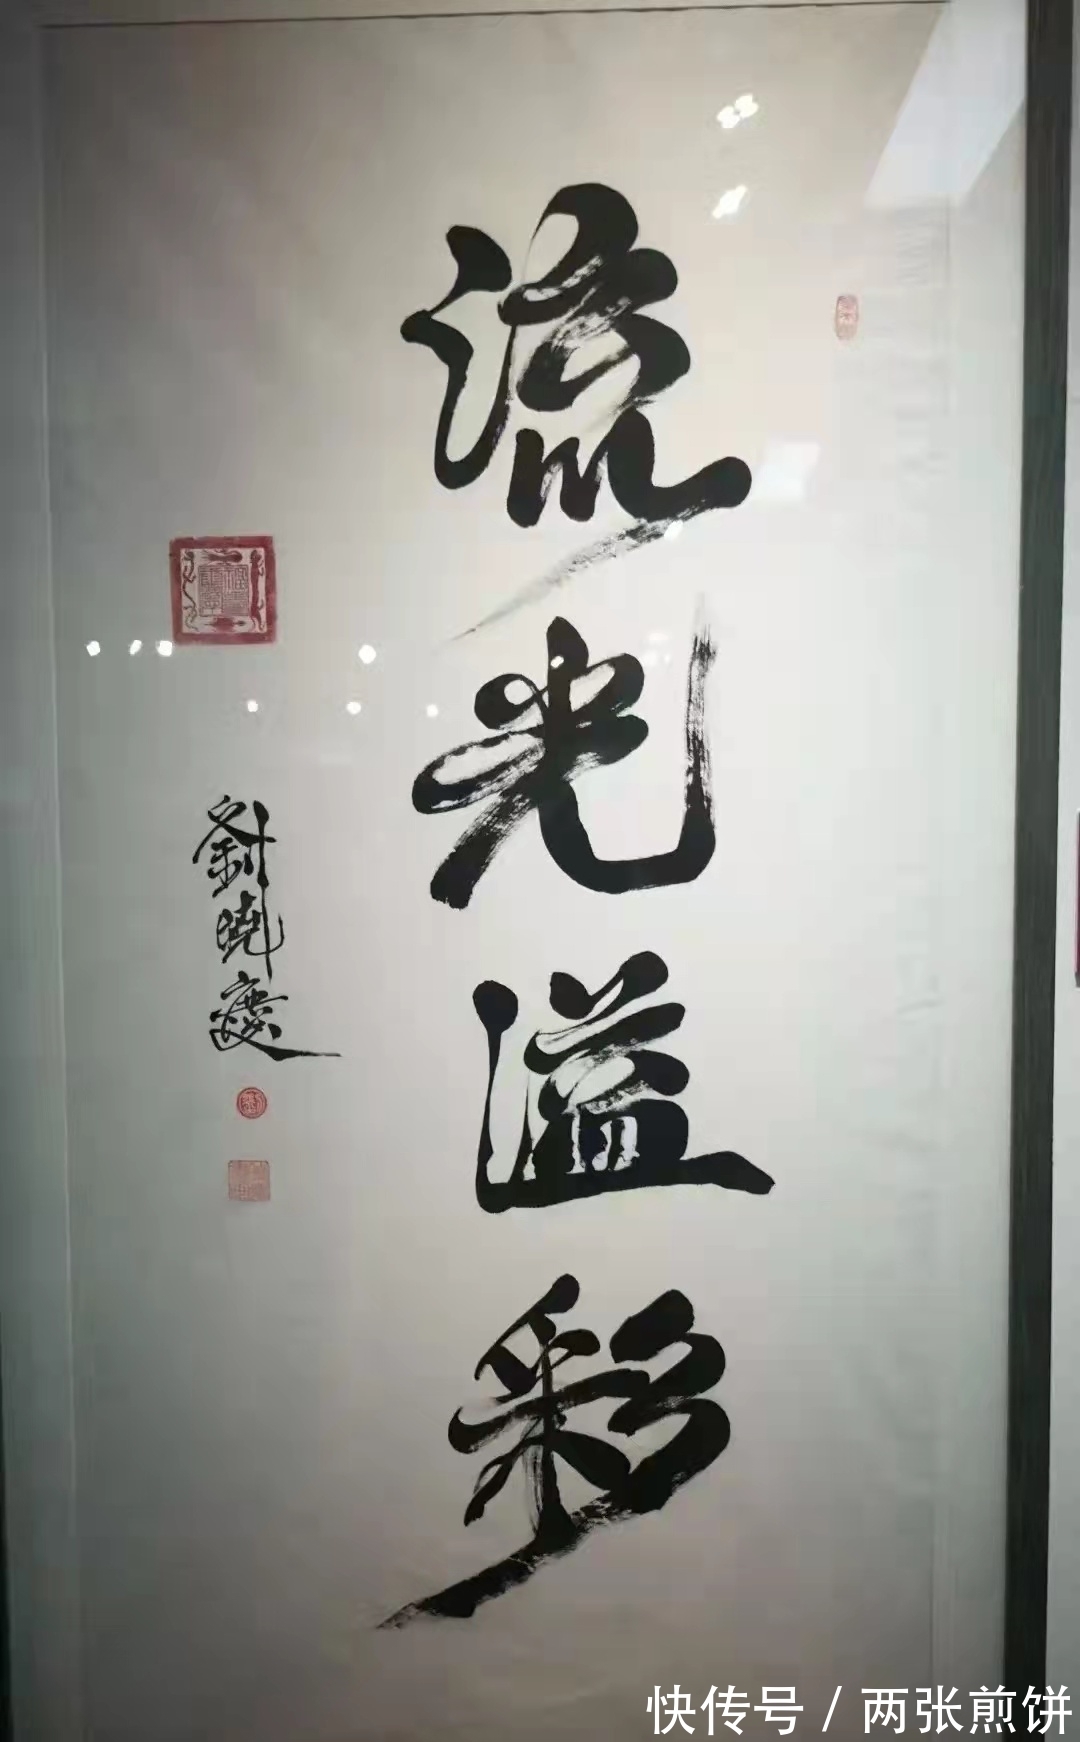 流光溢彩
劉曉慶
快传号 / 两张煎饼